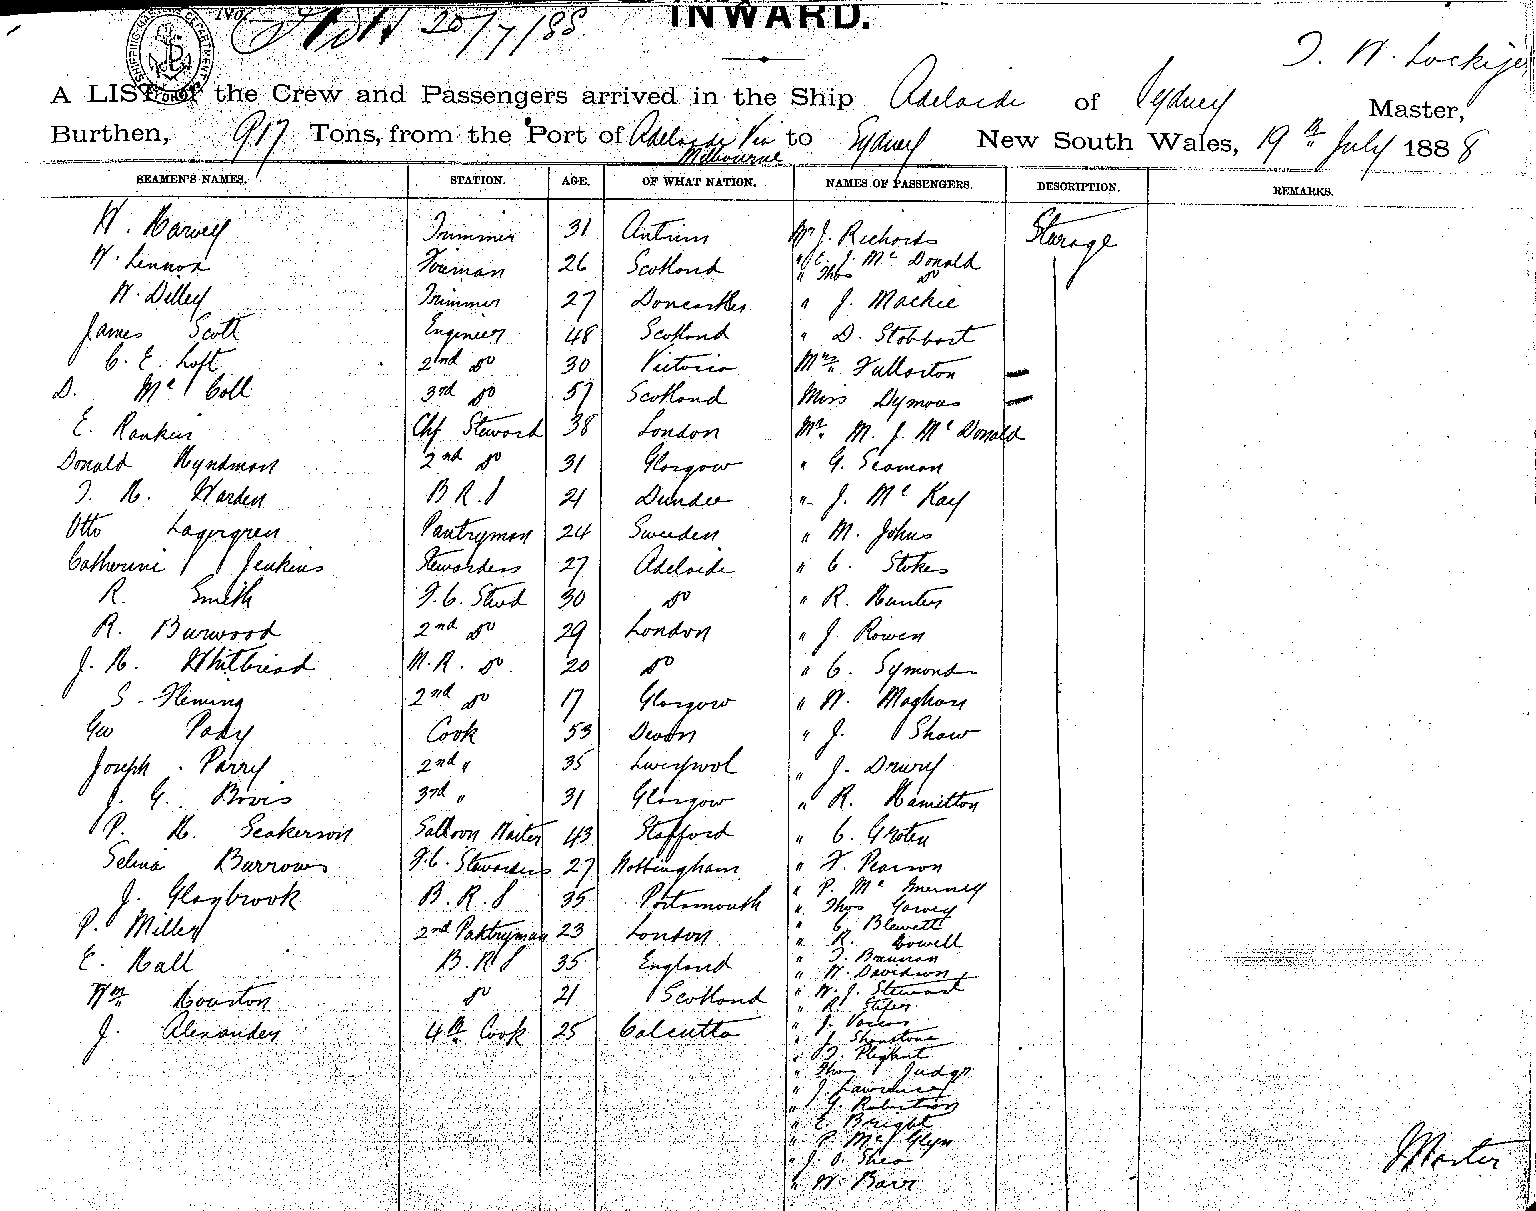 No 20/7/88
INWARD.
SHIPPING MASTER'S DEPARTMENT
T. W. Lockyer
A LIST of the Crew and Passengers arrived in the Ship Adelaide of Sydney Master,
Burthen, 917 Tons, from the Port of Adelaide Via Melbourne to Sydney New South Wales, 19th July 1888
SEAMEN'S NAMES. STATION. AGE. OF WHAT NATION. NAMES OF PASSENGERS. DESCRIPTION. REMARKS.
W. Harvey Trimmer 31 Antrim Mr J. Richards Sterage
W. Lennox Fireman 26 Scotland " E. J. Mc Donald
" Thos do
W. Dilley Trimmer 27 Doncaster " J. Mackie
James Scott Engineer 48 Scotland " D. Stobbart
C. E. Loft 2nd do 30 Victoria Mrs Fullarton
D. Mc Coll 3rd do 57 Scotland Miss Dymous
E. Rankin Chf Steward 38 London Mr. M. J. Mc Donald
Donald Hyndman 2nd do 31 Glasgow " G. Seaman
T. H. Harden B R. S 21 Dundee " J. Mc Kay
Otto Lagergren Pantryman 24 Sweden " M. Johns
Catherine Jenkins Stewardess 27 Adelaide " C. Stokes
R. Smith F. C. Stwd 30 do " R. Hunter
R. Burwood 2nd do 29 London " J. Rowen
J. H. Whitbread M. R. do 20 do " C. Symonds
S. Fleming 2nd do 17 Glasgow " W. Maghan
Geo Pady Cook 53 Devon " J. Shaw
Joseph Parry 2nd " 35 Liverpool " J. Drury
J. G. Bovis 3rd " 31 Glasgow " R. Hamilton
P. H. Seakerson Salloon Waiter 43 Stafford " C. Groten
Selina Burrows F. C. Stewardess 27 Nottingham " F. Pearson
" P. Mc Inerney
J. Glaybrook B. R. S 35 Portsmouth " Thos Garvey
" C. Blewett
P. Miller 2nd Panktryman 23 London " R. Howell
" T. Brannan
E. Hall B. R S 35 England " W. Davidson
" W. J. Stewart
Wm Houston do 21 Scotland " R. States
" J.
J. Alexander 4th Cook 25 Calcutta " J. Shenstone
" T.
" Thos Judge
" J. Lawrence
" G. Robertson
" E. Bright
" P. Mc Glyn
" J. O. Shea
" W. Barr
Master